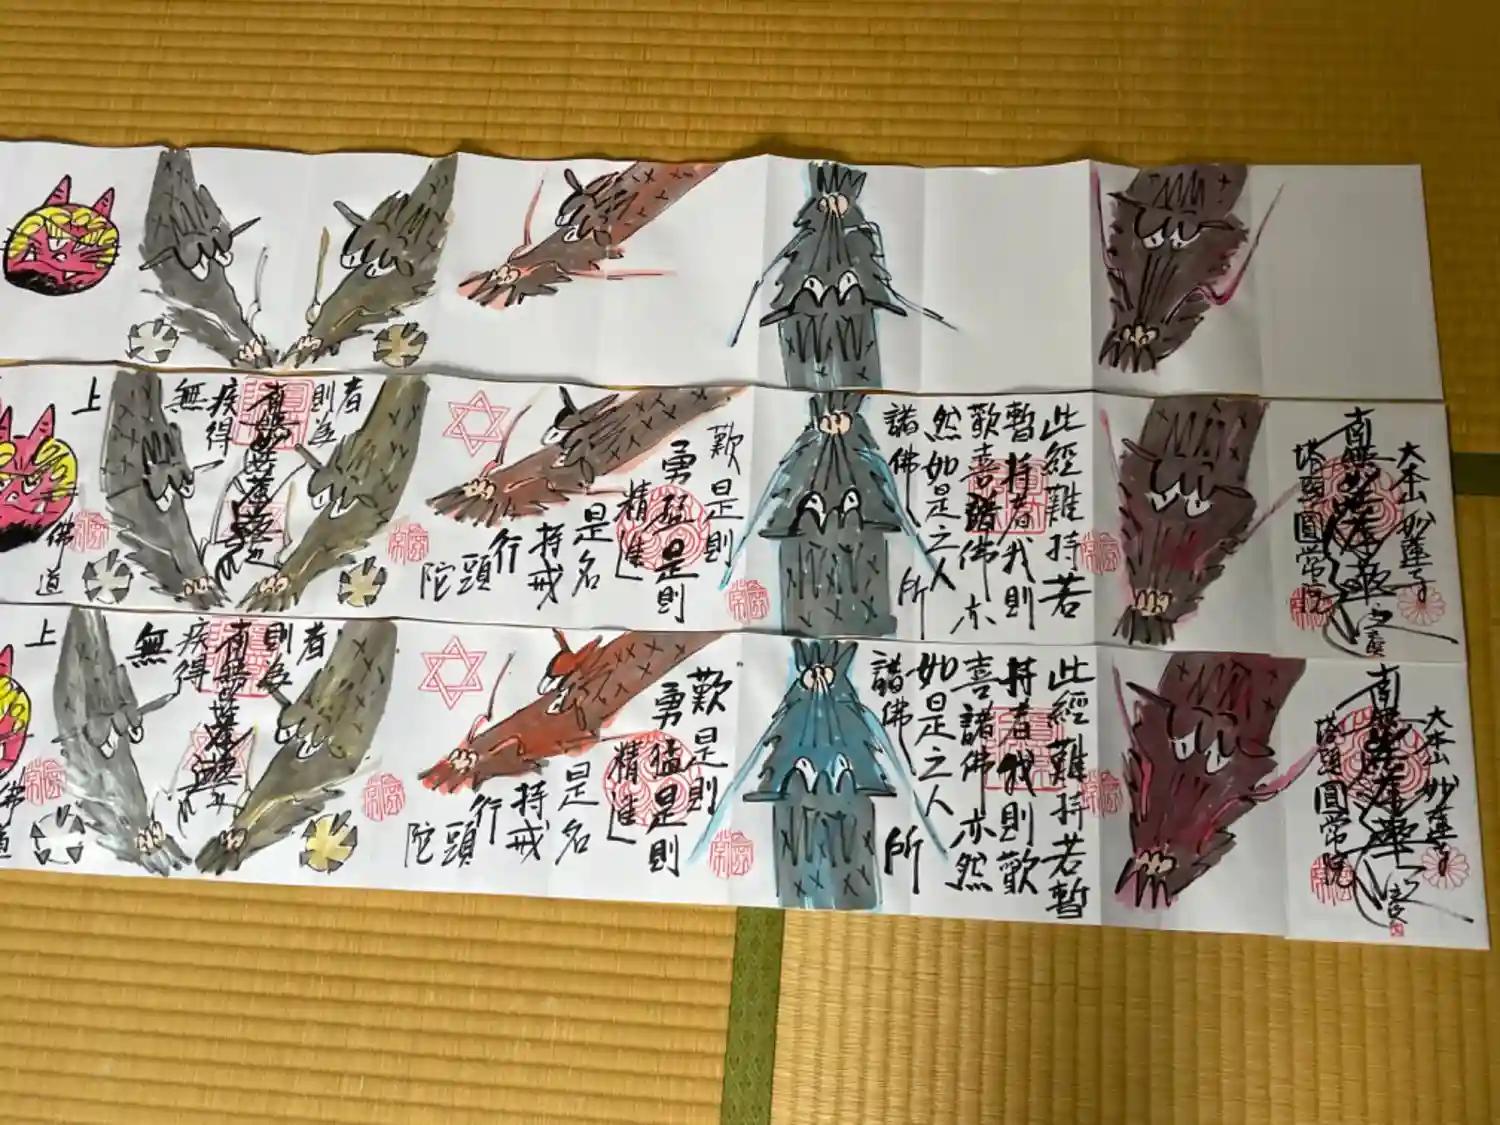 大本山 妙蓮寺
南無妙法蓮華経
塔頭 圓常院
此經難持若
暫持者我則
歡喜諸佛亦
然如是之人
諸佛
所
歎是則
勇猛是則
精進
是名
持戒
行
頭
陀
者
則為
疾得
無
上
佛道
大本山 妙蓮寺
南無妙法蓮華経
塔頭 圓常院
此經難持若暫
持者我則歡
喜諸佛亦然
如是之人
諸佛
所
歎是則
勇猛是則
精進
是名
持戒
行
頭
陀
者
則為
疾得
無
上
佛道